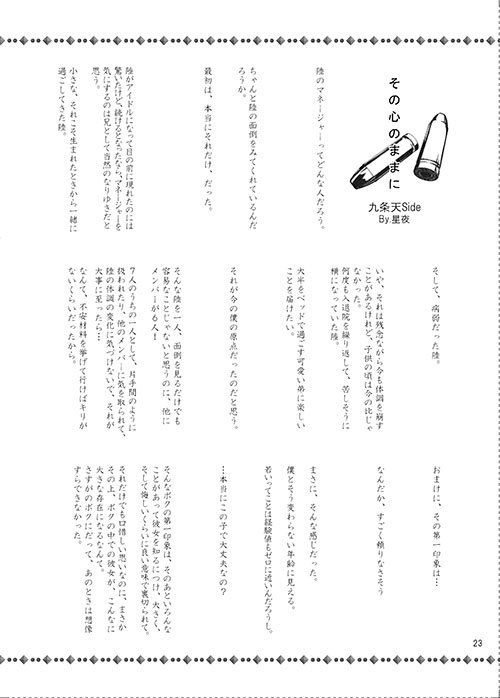 その心のままに
九条天Side
By.星夜
陸のマネージャーってどんな人だろう。
ちゃんと陸の面倒をみてくれているんだ
ろうか。
最初は、本当にそれだけ、だった。
陸がアイドルになって目の前に現れたのには
驚いたけど、続けるとなったなら、マネージャーを
気にするのは兄として当然のなりゆきだと
思う。
小さな、それこそ生まれたときから一緒に
過ごしてきた陸。
そして、病弱だった陸。
いや、それは残念ながら今も体調を崩す
ことがあるけれど、子供の頃は今の比じゃ
なかった。
何度も入退院を繰り返して、苦しそうに
横になっていた陸。
大半をベッドで過ごす可愛い弟に楽しい
ことを届けたい。
それが今の僕の原点だったのだと思う。
そんな陸を一人、面倒を見るだけでも
容易なことじゃないと思うのに、他に
メンバーが6人！
7人のうちの一人として、片手間のように
扱われたり、他のメンバーに気を取られて、
陸の体調の変化に気づけないで、それが
大事に至ったら…
なんて、不安材料を挙げて行けばキリが
ないくらいだったから。
おまけに、その第一印象は…
なんだか、すごく頼りなさそう
まさに、そんな感じだった。
僕とそう変わらない年齢に見える。
若いってことは経験値もゼロに近いんだろうし。
…本当にこの子で大丈夫なの？
そんなボクの第一印象は、そのあといろんな
ことがあって彼女を知るにつけ、大きく、
そして悔しいくらいに良い意味で裏切られて。
それだけでも口惜しい思いなのに、まさか
その上、ボクの中での彼女が、こんなに
大きな存在になるなんて。
さすがのボクにだって、あのときは想像
すらできなかった。
23